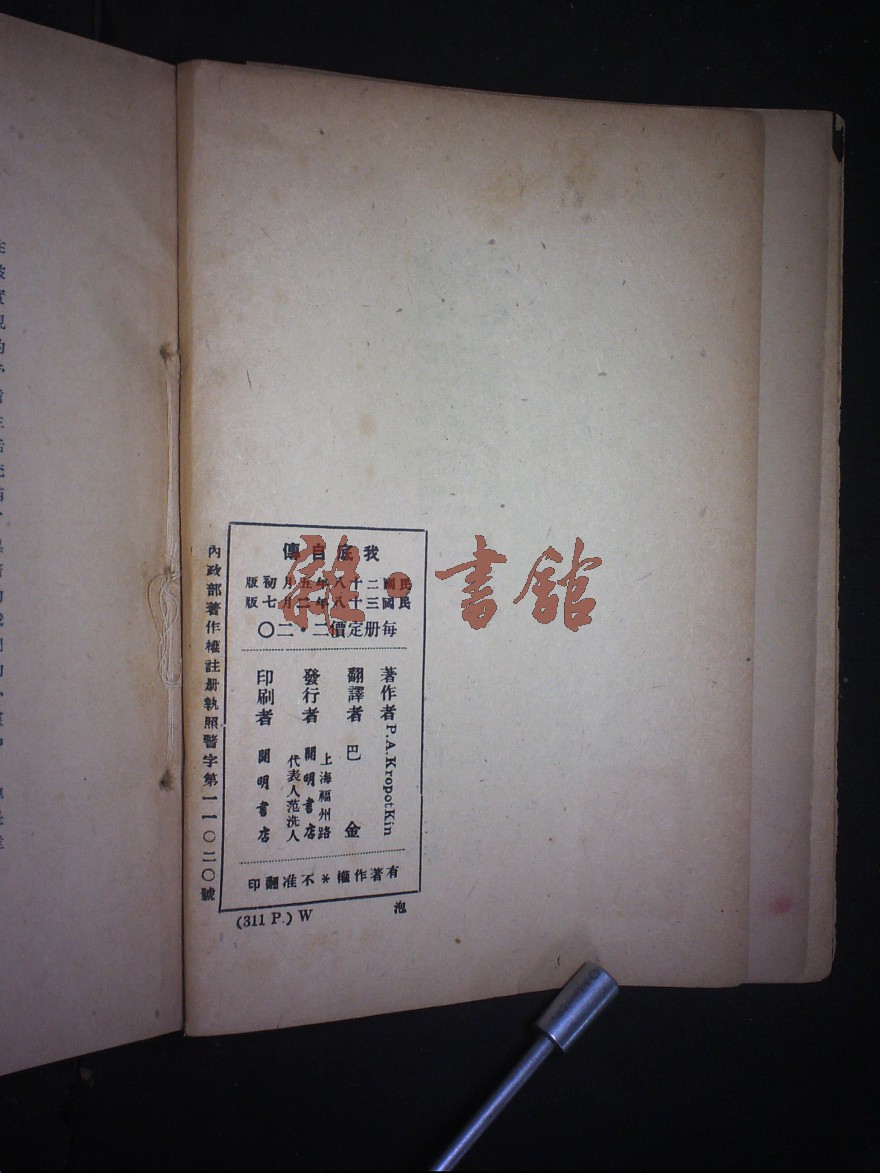 我底自傳
民國二十八年五月初版
民國三十八年二月七版
每册定價二・二〇
著作者 P.A.KropotKin
翻譯者 巴金
上海福州路
發行者 開明書店
代表人范洗人
印刷者 開明書店
有著作權*不准翻印
內政部著作權註册執照警字第一一〇二〇號
(311 P.) W 泡
雜・書館